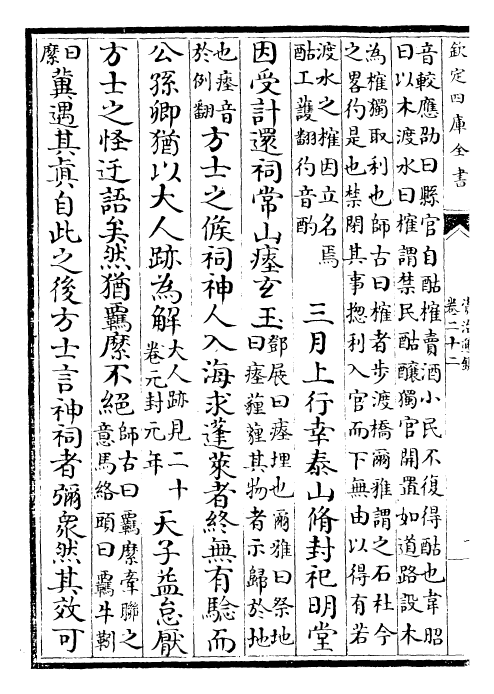 欽定四庫全書
資治通鑑
卷二十二
音較應劭曰縣官自酤榷賣酒小民不復得酤也韋昭
曰以木渡水曰榷謂禁民酤釀獨官開置如道路設木
為榷獨取利也師古曰榷者步渡橋爾雅謂之石杜今
之畧彴是也禁閉其事揔利入官而下無由以得有若
渡水之榷因立名焉
酤工護翻彴音酌
三月上行幸泰山脩封祀明堂
因受計還祠常山瘞玄玉
鄧展曰瘞埋也爾雅曰祭地
曰瘞薶薶其物者示歸於地
也瘞音
於例翻
方士之候祠神人入海求蓬萊者終無有騐而
公孫卿猶以大人跡為解
大人跡見二十
卷元封元年
天子益怠厭
方士之怪迂語矣然猶羈縻不絕
師古曰羈縻牽聯之
意馬絡頭曰羈牛靷
曰
縻
冀遇其真自此之後方士言神祠者彌衆然其效可